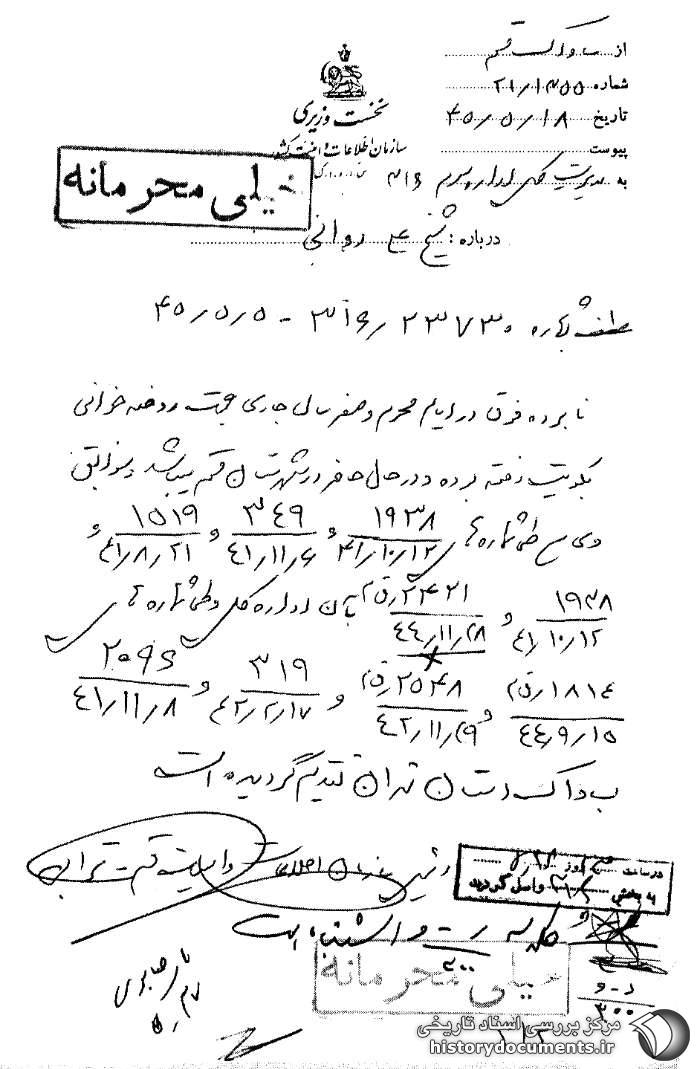 از ساواک قم
شماره ۲۱/۱۲۵۵
تاریخ ۴۵/۵/۱۸
پیوست
نخست وزیری
سازمان اطلاعات و امنیت کشور
به مدیریت کل اداره سوم ۳۱۶
خیلی محرمانه
درباره : شیخ
عطف بشماره ۳۱۶/۲۳۷۳۰ - ۴۵/۵/۵
نامبرده فوق در ایام محرم و صفر سال جاری جهت روضه خوانی
بکویت رفته بوده و در حال حاضر در شهرستان قم میباشد سوابق
وی طی شماره های ۱۹۳۸ ۴۱/۱۰/۱۲ و ۳۴۹ ۴۱/۱۱/۶ و ۱۵۱۹ ۴۱/۸/۲۱ و
۱۹۳۸ ۴۱/۱۰/۱۲ و ۲۴۲۱/ق م ۴۴/۱۱/۲۸ بآن اداره کل و طی شماره های
۱۸۱۴/ق م ۴۴/۹/۱۵ و ۲۵۴۸/ق م ۴۲/۱۱/۲۹ و ۳۱۹ ۴۲/۲/۱۷ و ۲۰۹۶ ۴۱/۱۱/۸
بساواک استان تهران تقدیم گردیده است
رئیس سازمان اطلاعات و امنیت قم
در ساعت روز
به بخش ۳۱۶ واصل گردید
خیلی محرمانه
۳۰۰
مرکز بررسی اسناد تاریخی
historydocuments.ir